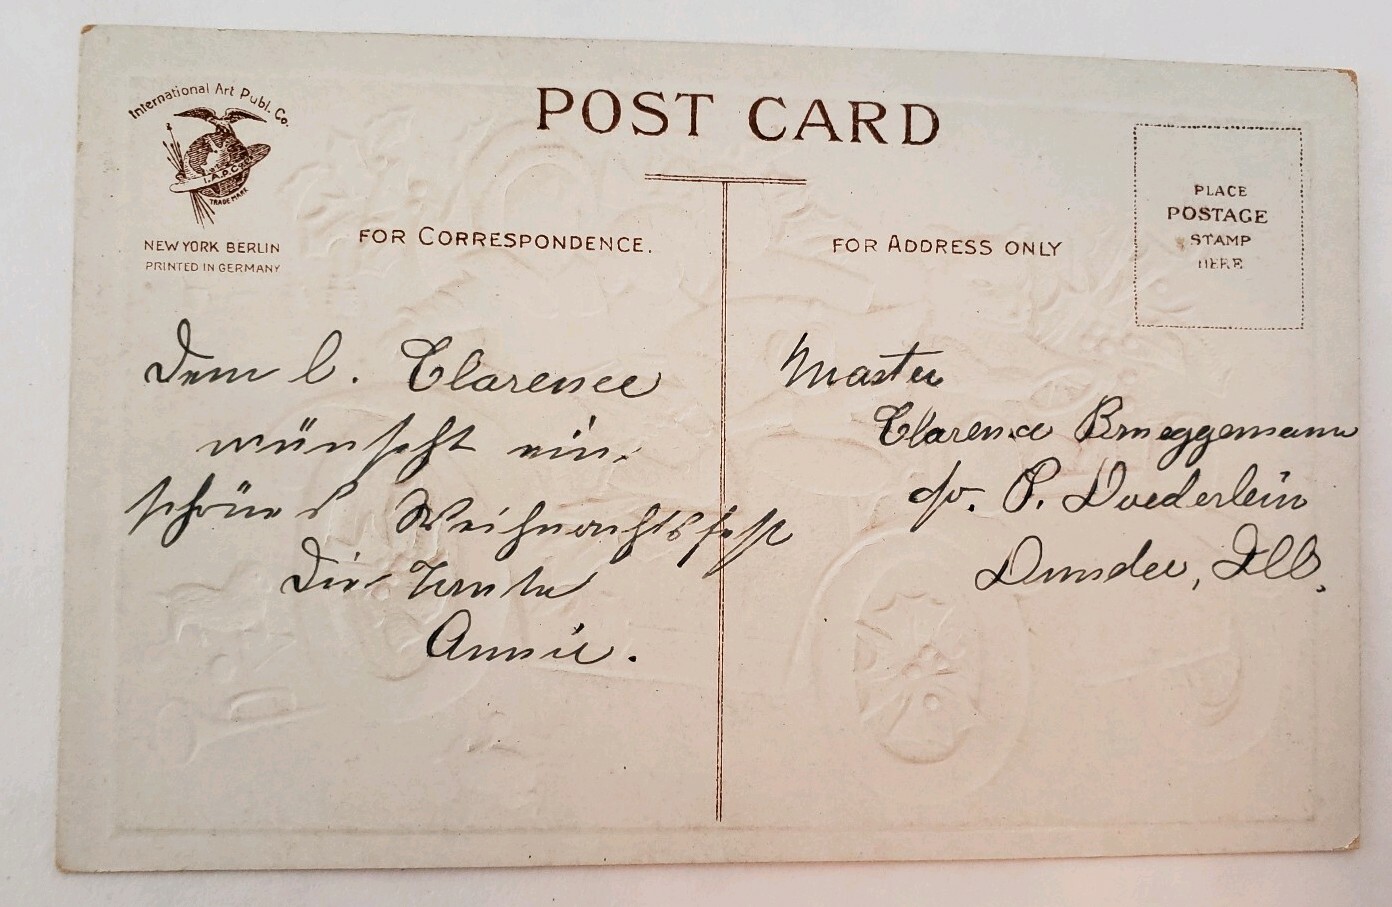 International Art Publ. Co.
I.A.P.Co.
TRADE MARK
NEW YORK BERLIN
PRINTED IN GERMANY
POST CARD
FOR CORRESPONDENCE.
FOR ADDRESS ONLY
PLACE
POSTAGE
STAMP
HERE
Dem l. Clarence
wünscht ein
schönes Weihnachtsfest
Die Tante
Annie.
Master
Clarence Brueggemann
c/o. P. Doederlein
Dundee, Ill.